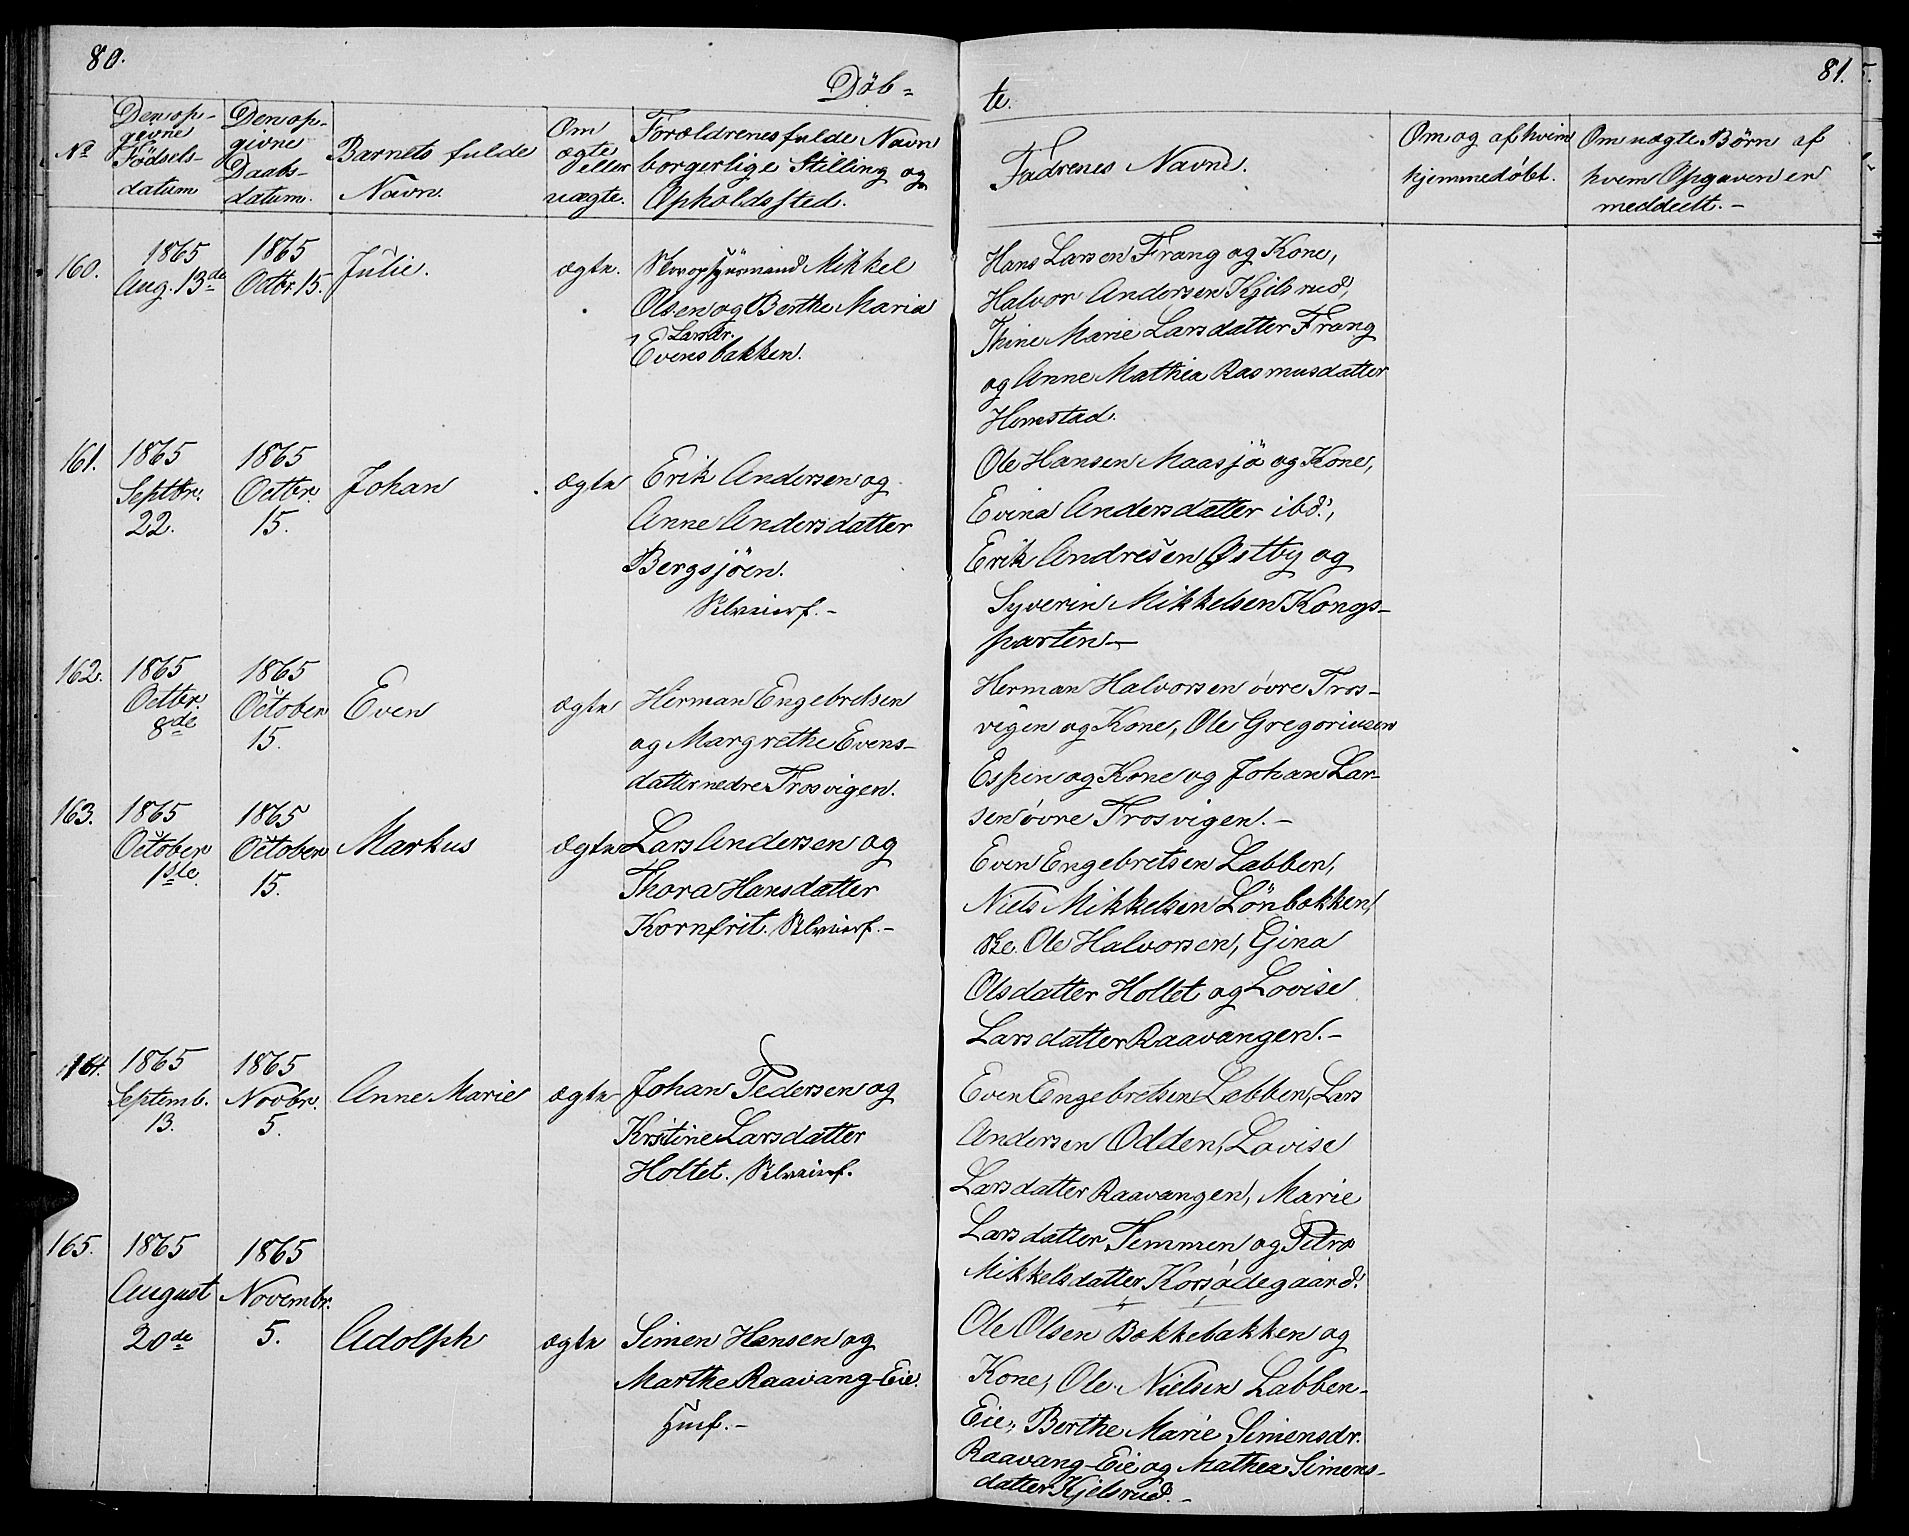 80.
Döb-
No
Den op-
givne
Födsels-
datum
Den op-
givne
Daabs-
datum.
Barnets fulde
Navn.
Om
ægte
eller
uægte.
Forældrenes fulde Navn
borgerlige Stilling og
Opholdssted.
160.
1865
Aug. 13de
1865
Octbr. 15.
Julie.
ægte.
Mikkel
Olsen og Berthe Maria
Larsdr.
Evensbakken.
161.
1865
Septbr.
22.
1865
Octbr.
15.
Johan
ægte
Erik Andersen og
Anne Andersdatter
Bergsjöen.
Selveierf.-
162.
1865
Octbr.
8de
1865
October
15.
Even
ægte
Herman Engebretsen
og Margrethe Evens-
datter nedre Trosvigen.
163.
1865
October
1ste
1865
October
15.
Markus
ægte
Lars Andersen og
Thora Hansdatter
Kornfrit. Selveierf.-
164.
1865
Septemb.
13.
1865
Novbr.
5.
Anne Marie
ægte
Johan Pedersen og
Kristine Larsdatter
Holtet. Selveierf.
165.
1865
August
20de
1865
Novembr.
5.
Adolph
ægte
Simen Hansen og
Marthe Raavang-Eie.
Husf.-
81.
te.
Fadrenes Navne.
Om og af hvem
hjemmedöbt.
Om uægte Börn af
hvem Opgaven er
meddeelt.-
Hans Larsen Frang og Kone,
Halvor Andersen Kjelsrud,
Thine Marie Larsdatter Frang
og Anne Mathea Rasmusdatter
Hemstad.
Ole Hansen Maasjö og Kone,
Evina Andersdatter ibd.,
Erik Andresen Østby og
Syverin Mikkelsen Kongs-
parten-
Herman Halvorsen övre Tros-
vigen og Kone, Ole Gregoriusen
Espen og Kone og Johan Lar-
sen övre Trosvigen.-
Even Engebretsen Labben,
Niels Mikkelsen Lönbakken,
Ole Halvorsen, Gina
Olsdatter Holtet og Lovise
Larsdatter Raavangen.-
Even Engebretsen Labben, Lars
Andersen Odden, Lovise
Larsdatter Raavangen, Marie
Larsdatter Temmen og Petra
Mikkelsdatter Korsödegaard.
Ole Olsen Bækkebakken og
Kone, Ole Nielsen Labben-
Eie, Berthe Marie Simensdr.
Raavang-Eie og Mathea Simens-
datter Kjelsrud.-